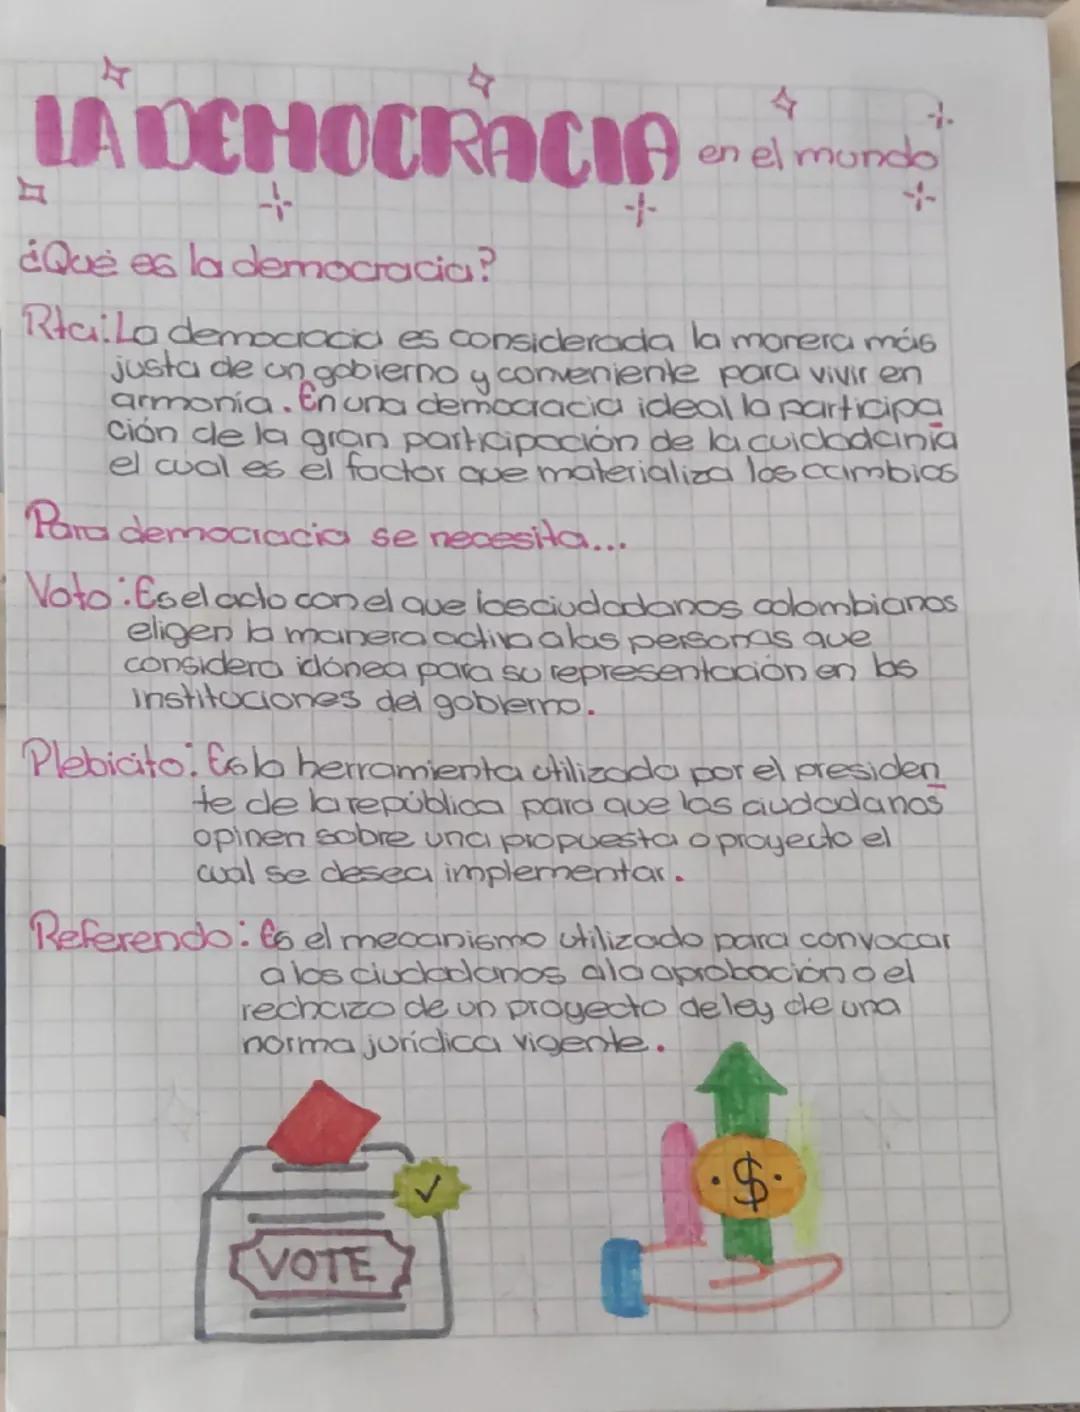 LA DEMOCRACIA en el mundo
¿Qué es la democracia?
Rta: La democracia es considerada la manera más
justa de un gobierno y conveniente para vivir en
armonía. En una democracia ideal la participa
ción de la gran participación de la cuidadanía
el cual es el factor que materializa los cambios
Para democracia se necesita...
Voto: Es el acto con el que los ciudadanos colombianos
eligen la manera activa a las personas que
considera idónea para su representación en las
instituciones del gobierno.
Plebicito: Es la herramienta utilizada por el presiden
te de la república para que los ciudadanos
opinen sobre una propuesta o proyecto el
cual se desea implementar.
Referendo: Es el mecanismo utilizado para convocar
a los ciudadanos a la aprobación o el
rechazo de un proyecto de ley de una
norma jurídica vigente.
VOTE
$